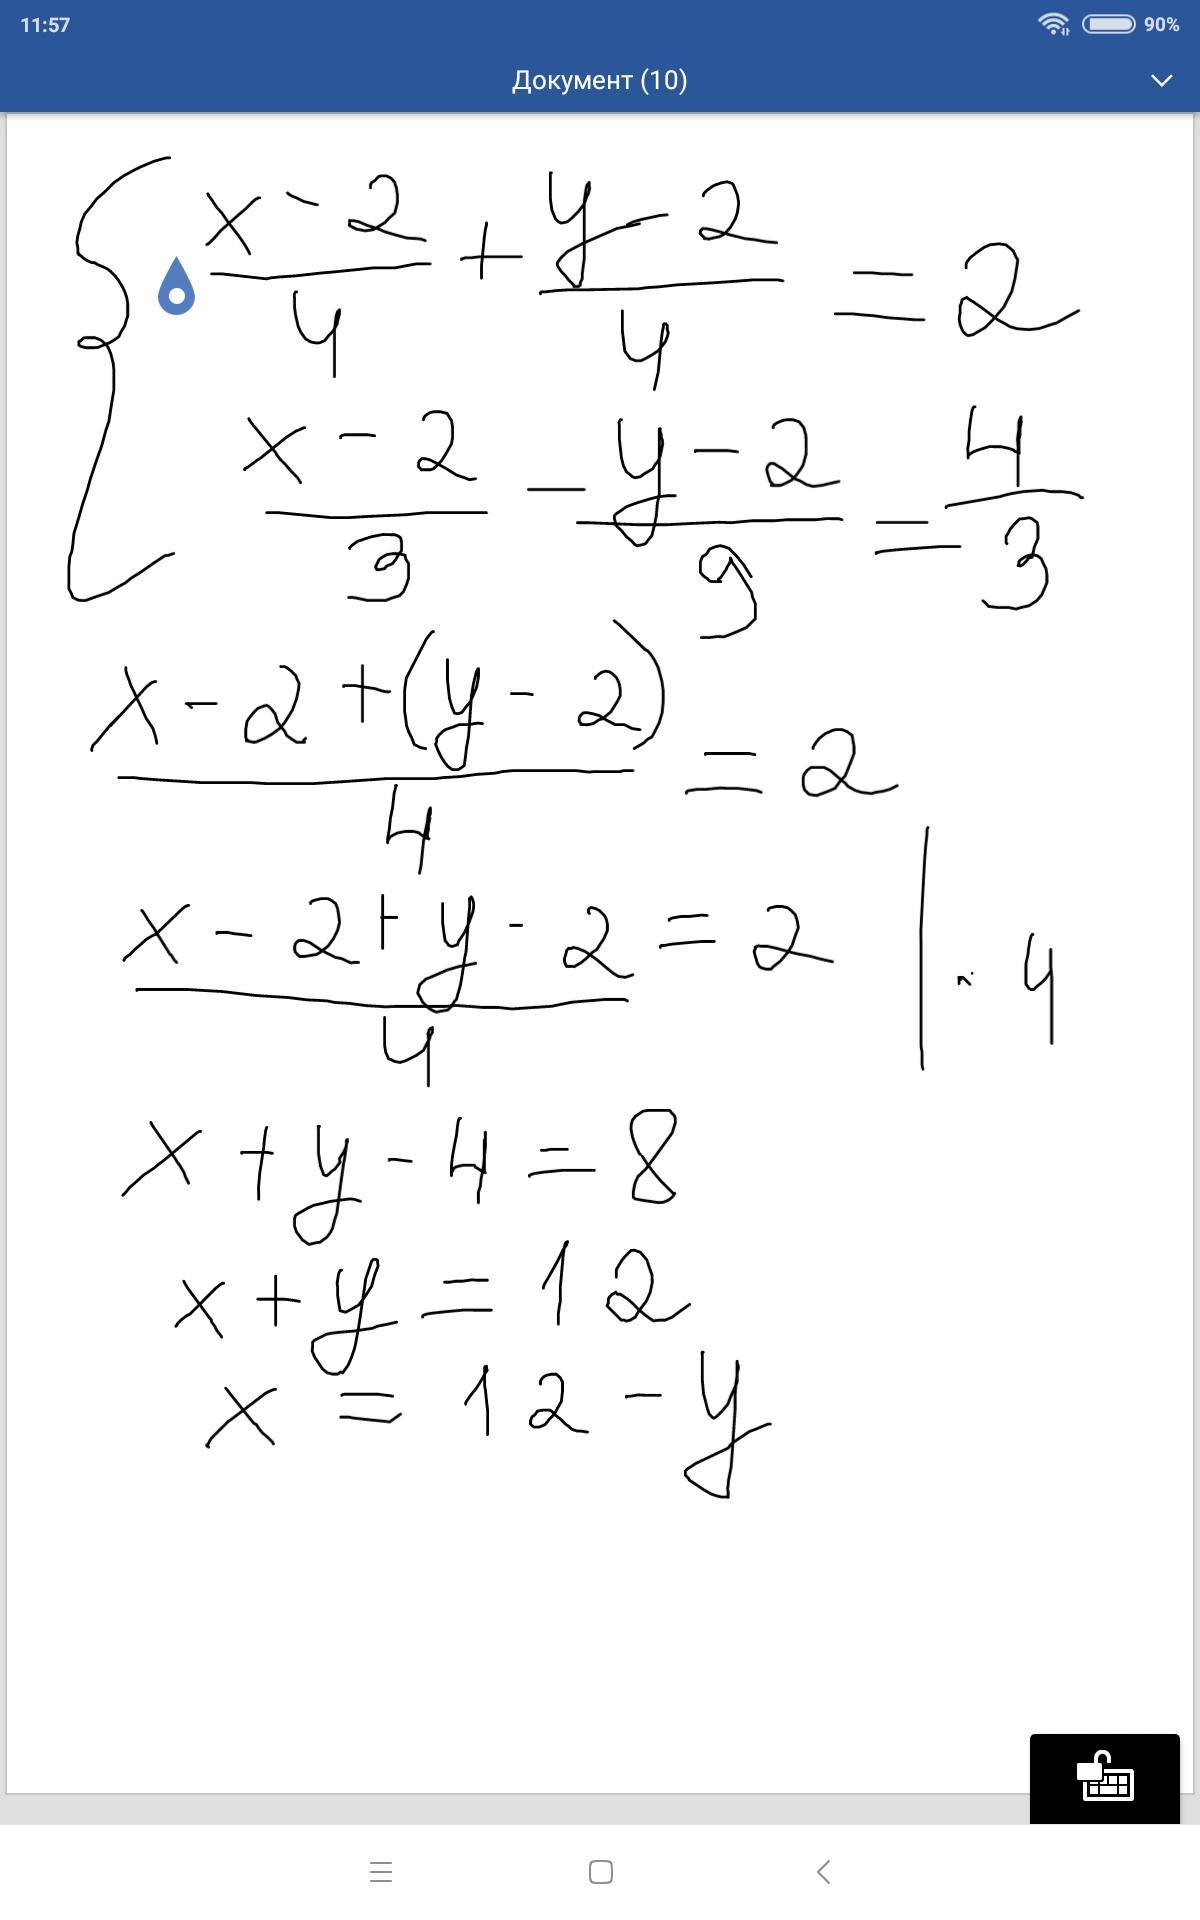 11:57 90%
Документ (10)
{ (x - 2)/4 + (y - 2)/4 = 2
(x - 2)/3 - (y - 2)/9 = 4/3
(x - 2 + (y - 2))/4 = 2
(x - 2 + y - 2)/4 = 2 | · 4
x + y - 4 = 8
x + y = 12
x = 12 - y